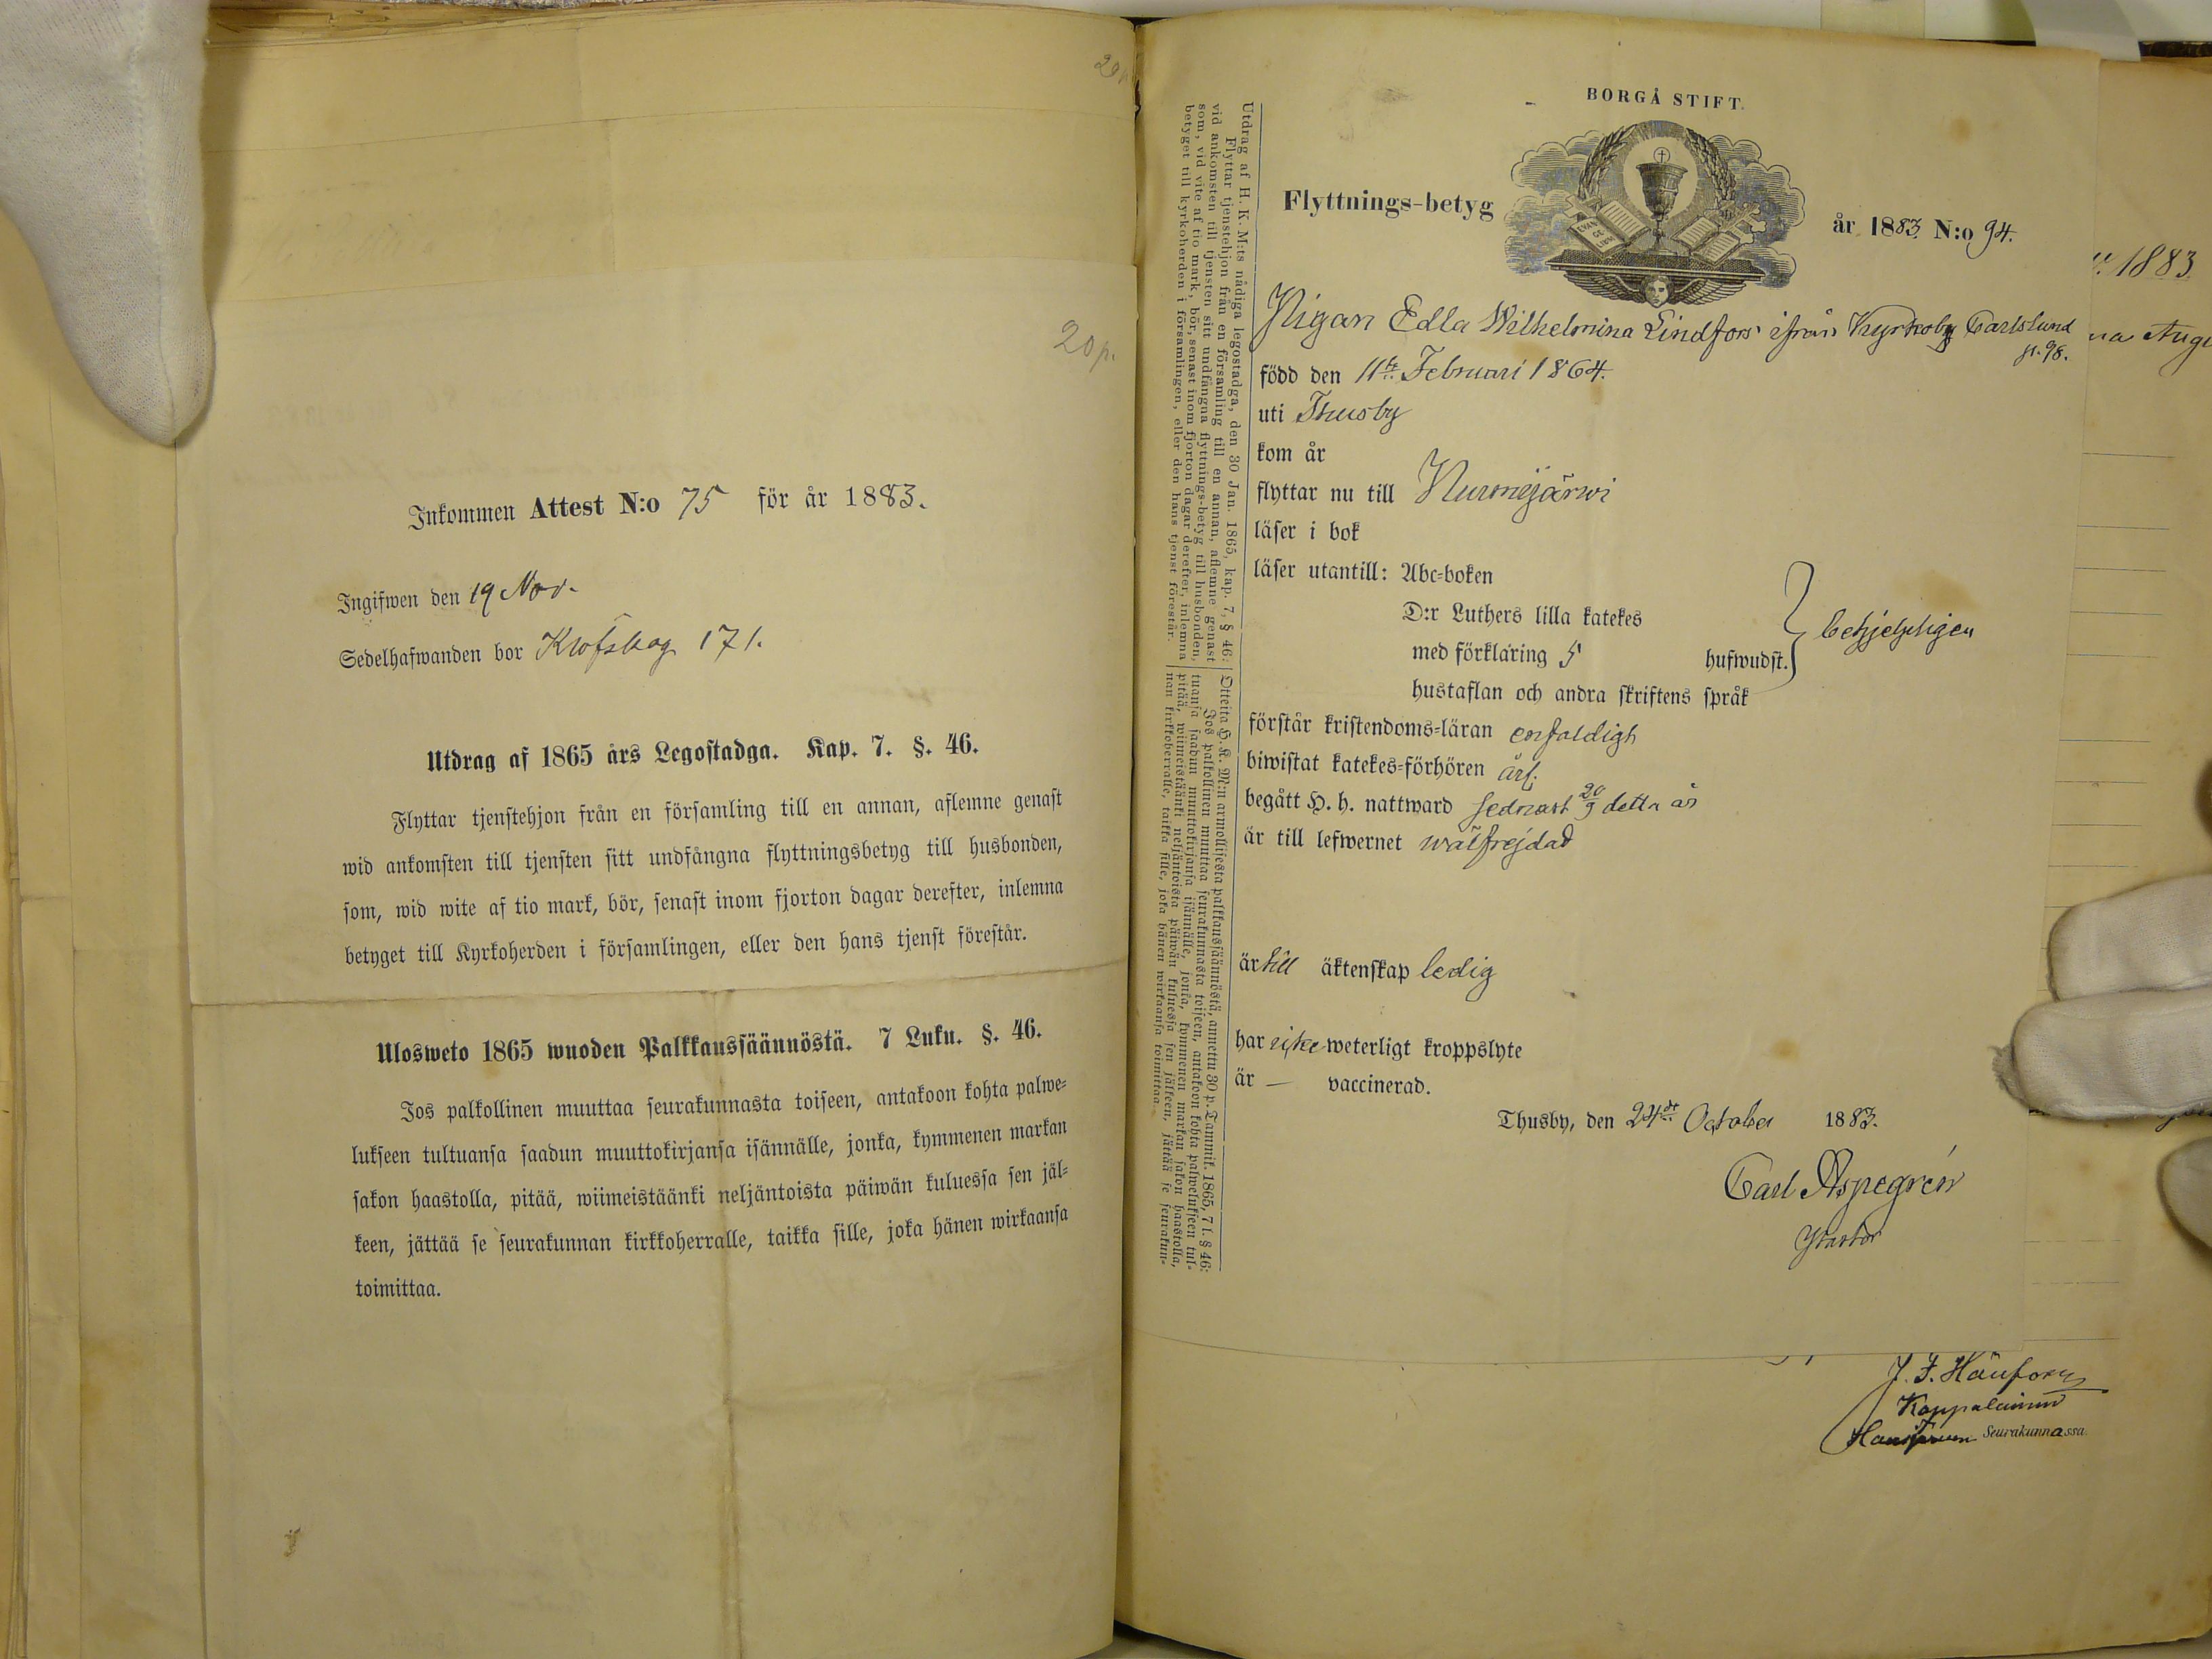 20 p.
Inkommen Attest N:o 75 för år 1883.
Ingifwen den 19 Nov.
Sedelhafwanden bor Krofskog 171.
Utdrag af 1865 års Legostadga. Kap. 7. §. 46.
Flyttar tjenstehjon från en församling till en annan, aflemne genast
wid ankomsten till tjensten sitt undfångna flyttningsbetyg till husbonden,
som, wid wite af tio mark, bör, senast inom fjorton dagar derefter, inlemna
betyget till Kyrkoherden i församlingen, eller den hans tjenst förestår.
Ulosweto 1865 wuoden Palkkaussäännöstä. 7 Luku. §. 46.
Jos palkollinen muuttaa seurakunnasta toiseen, antakoon kohta palwe=
lukseen tultuansa saadun muuttokirjansa isännälle, jonka, kymmenen markan
sakon haastolla, pitää, wiimeistäänki neljäntoista päiwän kuluessa sen jäl=
keen, jättää se seurakunnan kirkkoherralle, taikka sille, joka hänen wirkaansa
toimittaa.
BORGÅ STIFT.
Flyttnings-betyg
EVAN
GE
LIUM
år 1883 N:o 94.
Pigan Edla Wilhelmina Lindfors ifrån Kyrkoby Carlslund
p. 98.
född den 11te Februari 1864.
uti Thusby
kom år
flyttar nu till Nurmejärwi
läser i bok
läser utantill: Abc=boken
D:r Luthers lilla katekes
med förklaring 5 hufwudst.
behjelpligen
hustaflan och andra skriftens språk
förstår kristendoms=läran enfaldigt
biwistat katekes=förhören årl.
begått H. h. nattward sednast 20/9 detta år
är till lefwernet wälfrejdad
är till äktenskap ledig
har icke weterligt kroppslyte
är — vaccinerad.
Thusby, den 24de October 1883.
Carl Aspegrén
Pastor
Utdrag af H. K. M:ts nådiga legostadga, den 30 Jan. 1865, kap. 7, § 46:
Flyttar tjenstehjon från en församling till en annan, aflemne genast
vid ankomsten till tjensten sitt undfångna flyttnings-betyg till husbonden,
som, vid vite af tio mark, bör, senast inom fjorton dagar derefter, inlemna
betyget till kyrkoherden i församlingen, eller den hans tjenst förestår.
Otteita H. K. M:n armollisesta palkkaussäännöstä, annettu 30 p. Tammik. 1865, 7 l. § 46:
Jos palkollinen muuttaa seurakunnasta toiseen, antakoon kohta palwelukseen tul=
tuansa saadun muuttokirjansa isännälle, jonka, kymmenen markan sakon haastolla,
pitää, wiimeistäänki neljäntoista päiwän kuluessa sen jälkeen, jättää se seurakun=
nan kirkkoherralle, taikka sille, joka hänen wirkaansa toimittaa.
1883
na Aug
Kappalainen
Seurakunnassa.